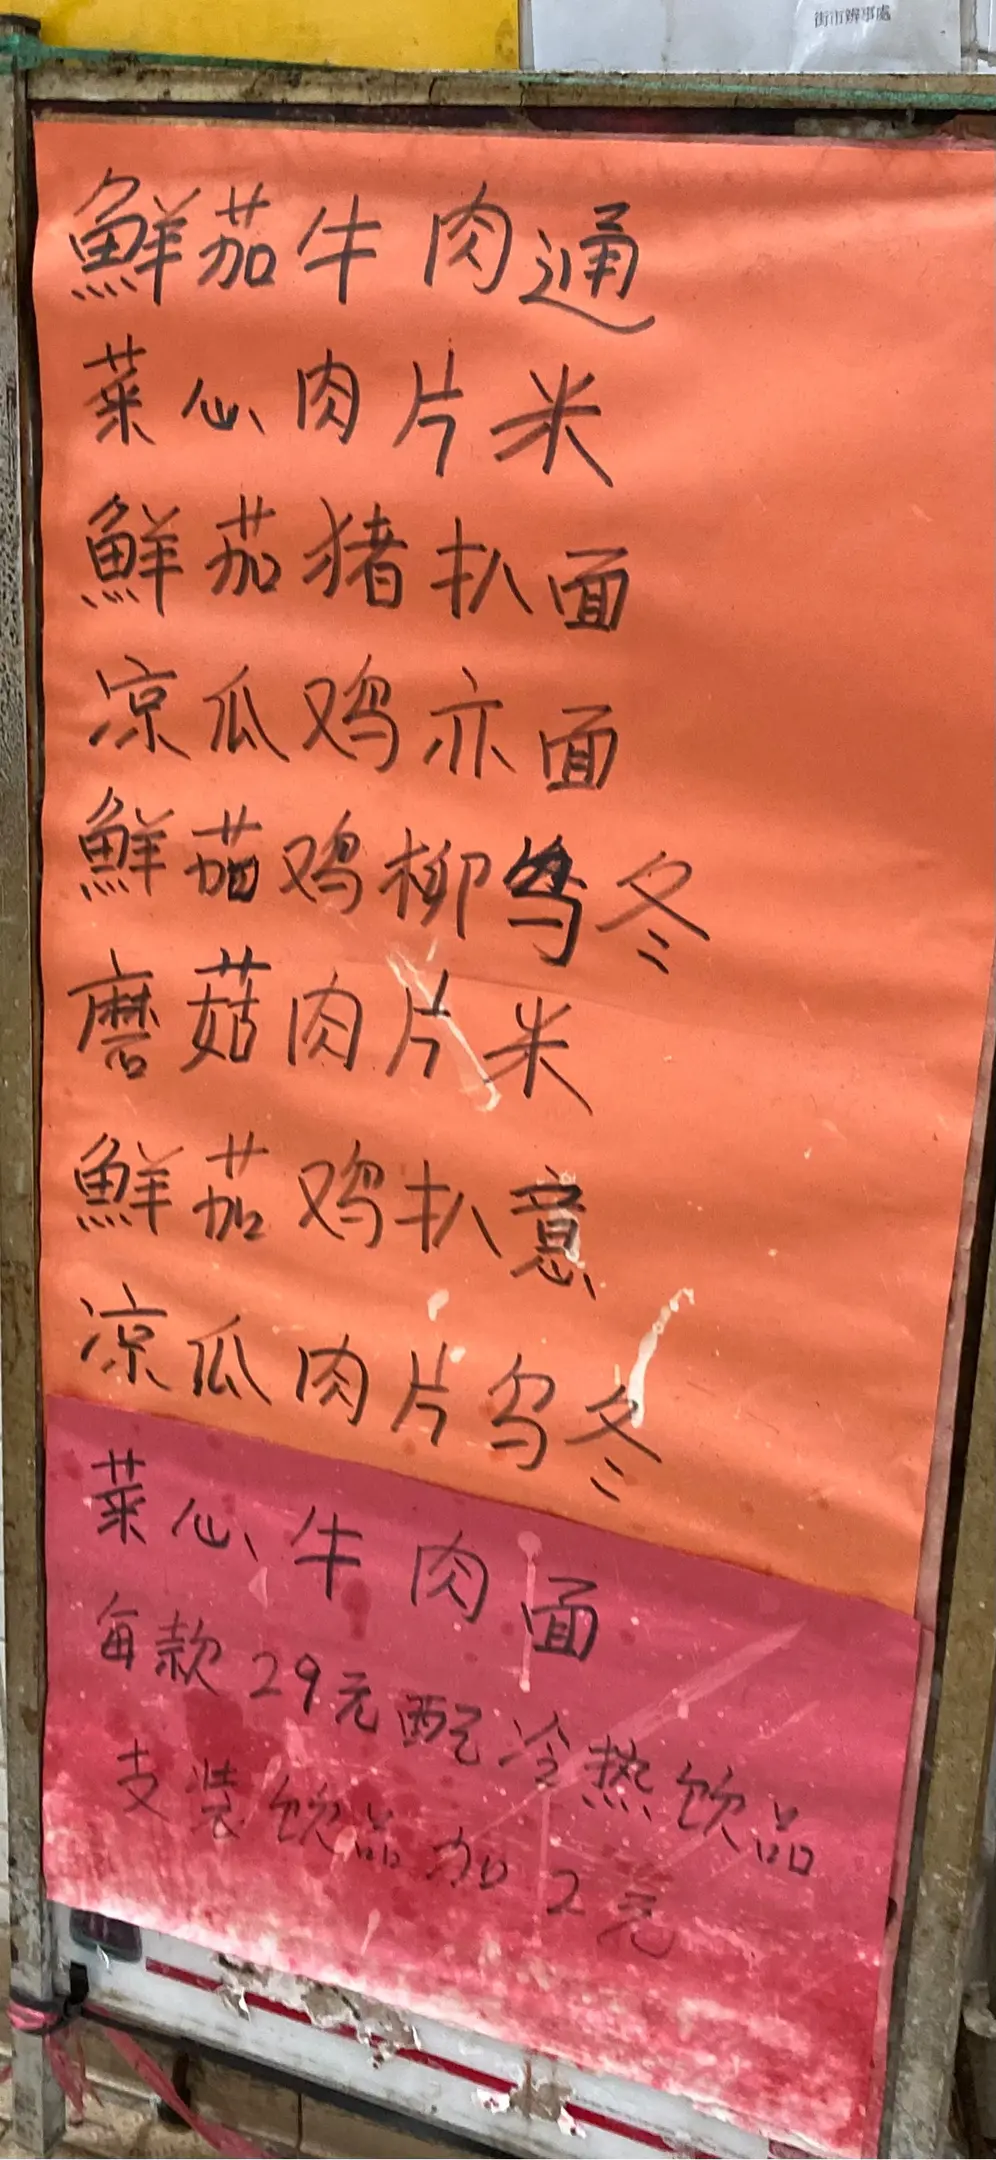 街市辦事處
鮮茄牛肉通
菜心肉片米
鮮茄猪扒面
凉瓜鸡亦面
鮮茄鸡柳乌冬
蘑菇肉片米
鮮茄鸡扒意
凉瓜肉片乌冬
菜心牛肉面
每款29元配冷热饮品
支装饮品加2元